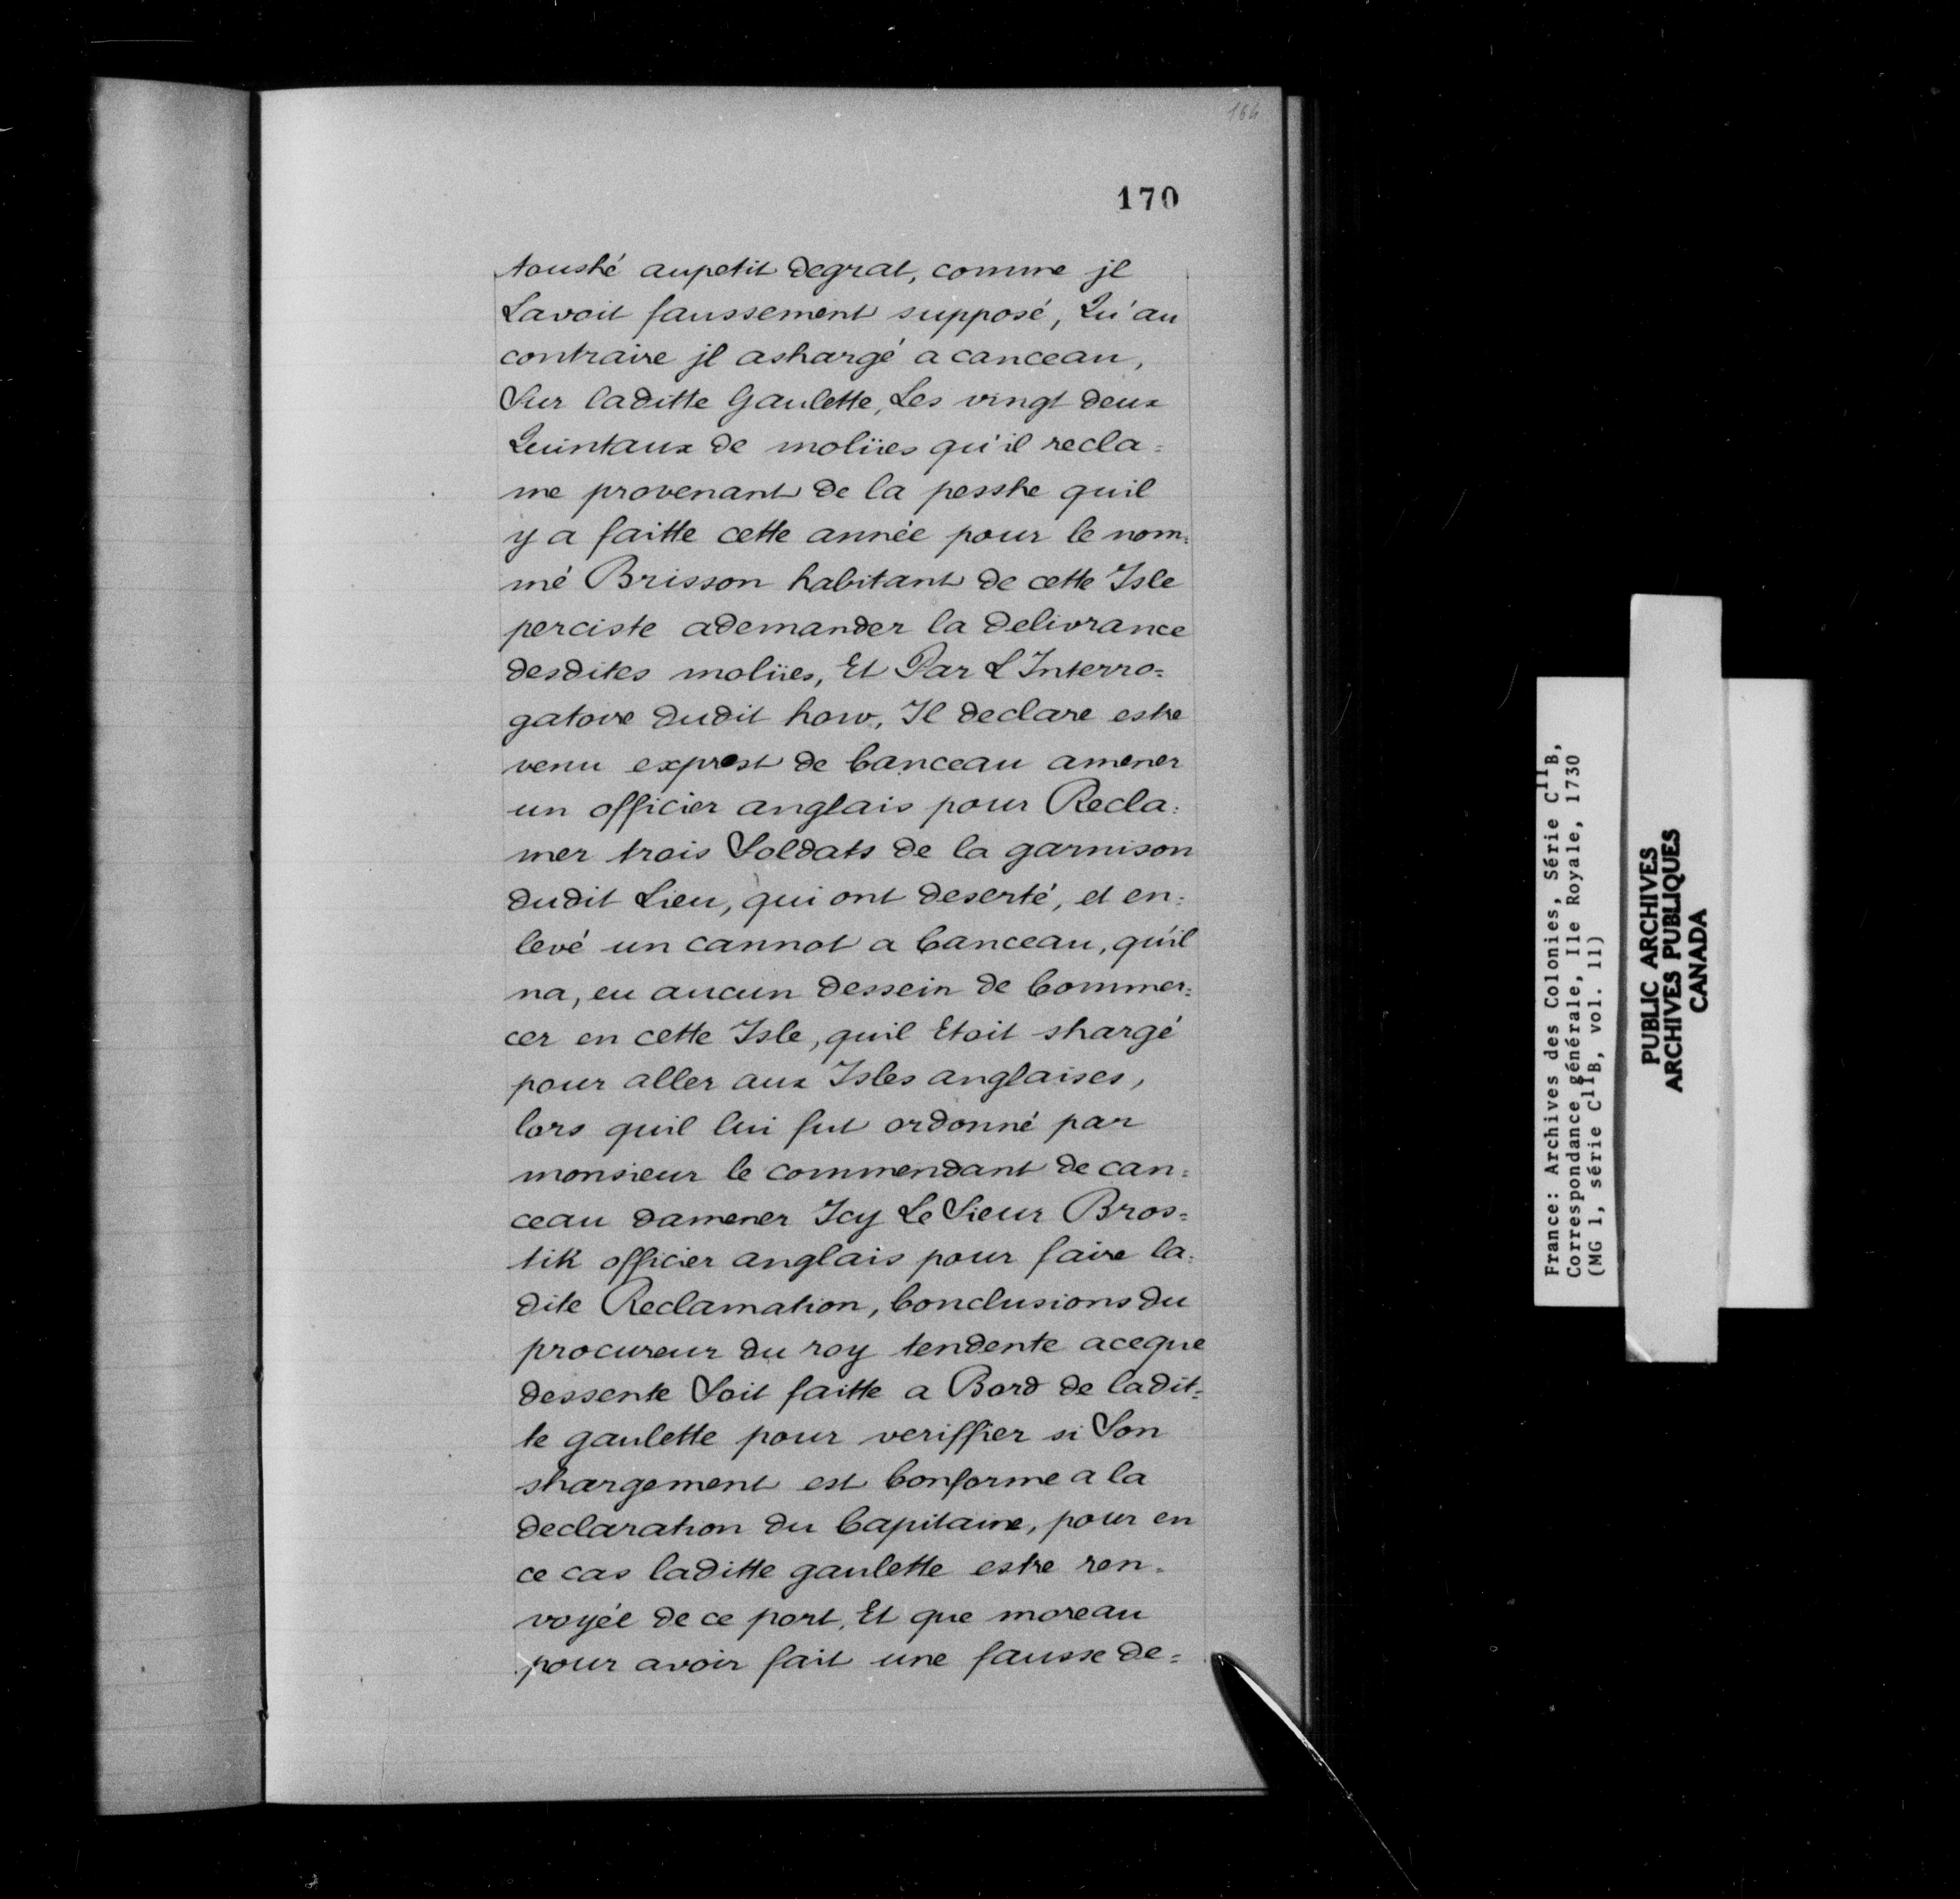 164
170
toushé aupetit degrat, comme jl
Lavoit faussement supposé, Qu'au
contraire jl ashargé a canceau,
Sur laditte Gaulette, Les vingt deux
Quintaux de moliies qu'il recla=
me provenant de la pesshe quil
y a faitte cette année pour le nom=
mé Brisson habitant de cette Isle
perciste ademander la delivrance
desdites moliies, Et Par L'Interro=
gatoire dudit how, Il declare estre
venu exprest de Canceau amener
un officier anglais pour Recla=
mer trois Soldats de la garnison
dudit Lieu, qui ont deserté, et en=
levé un cannot a Canceau, qu'il
na, eu aucun dessein de Commer=
cer en cette Isle, quil Etoit shargé
pour aller aux Isles anglaises,
lors quil lui fut ordonné par
monsieur le commendant de can=
ceau damener Icy Le Sieur Bros=
tik officier anglais pour faire la=
dite Reclamation, Conclusions du
procureur du roy tendente aceque
dessente Soit faitte a Bord de ladit=
te gaulette pour veriffier si Son
shargement est Conforme a la
declaration du Capitaine, pour en
ce cas laditte gaulette estre ren=
voyée de ce port, Et que moreau
pour avoir fait une fausse de=
France: Archives des Colonies, Série C11B,
Correspondance générale, Ile Royale, 1730
(MG 1, série C11B, vol. 11)
PUBLIC ARCHIVES
ARCHIVES PUBLIQUES
CANADA